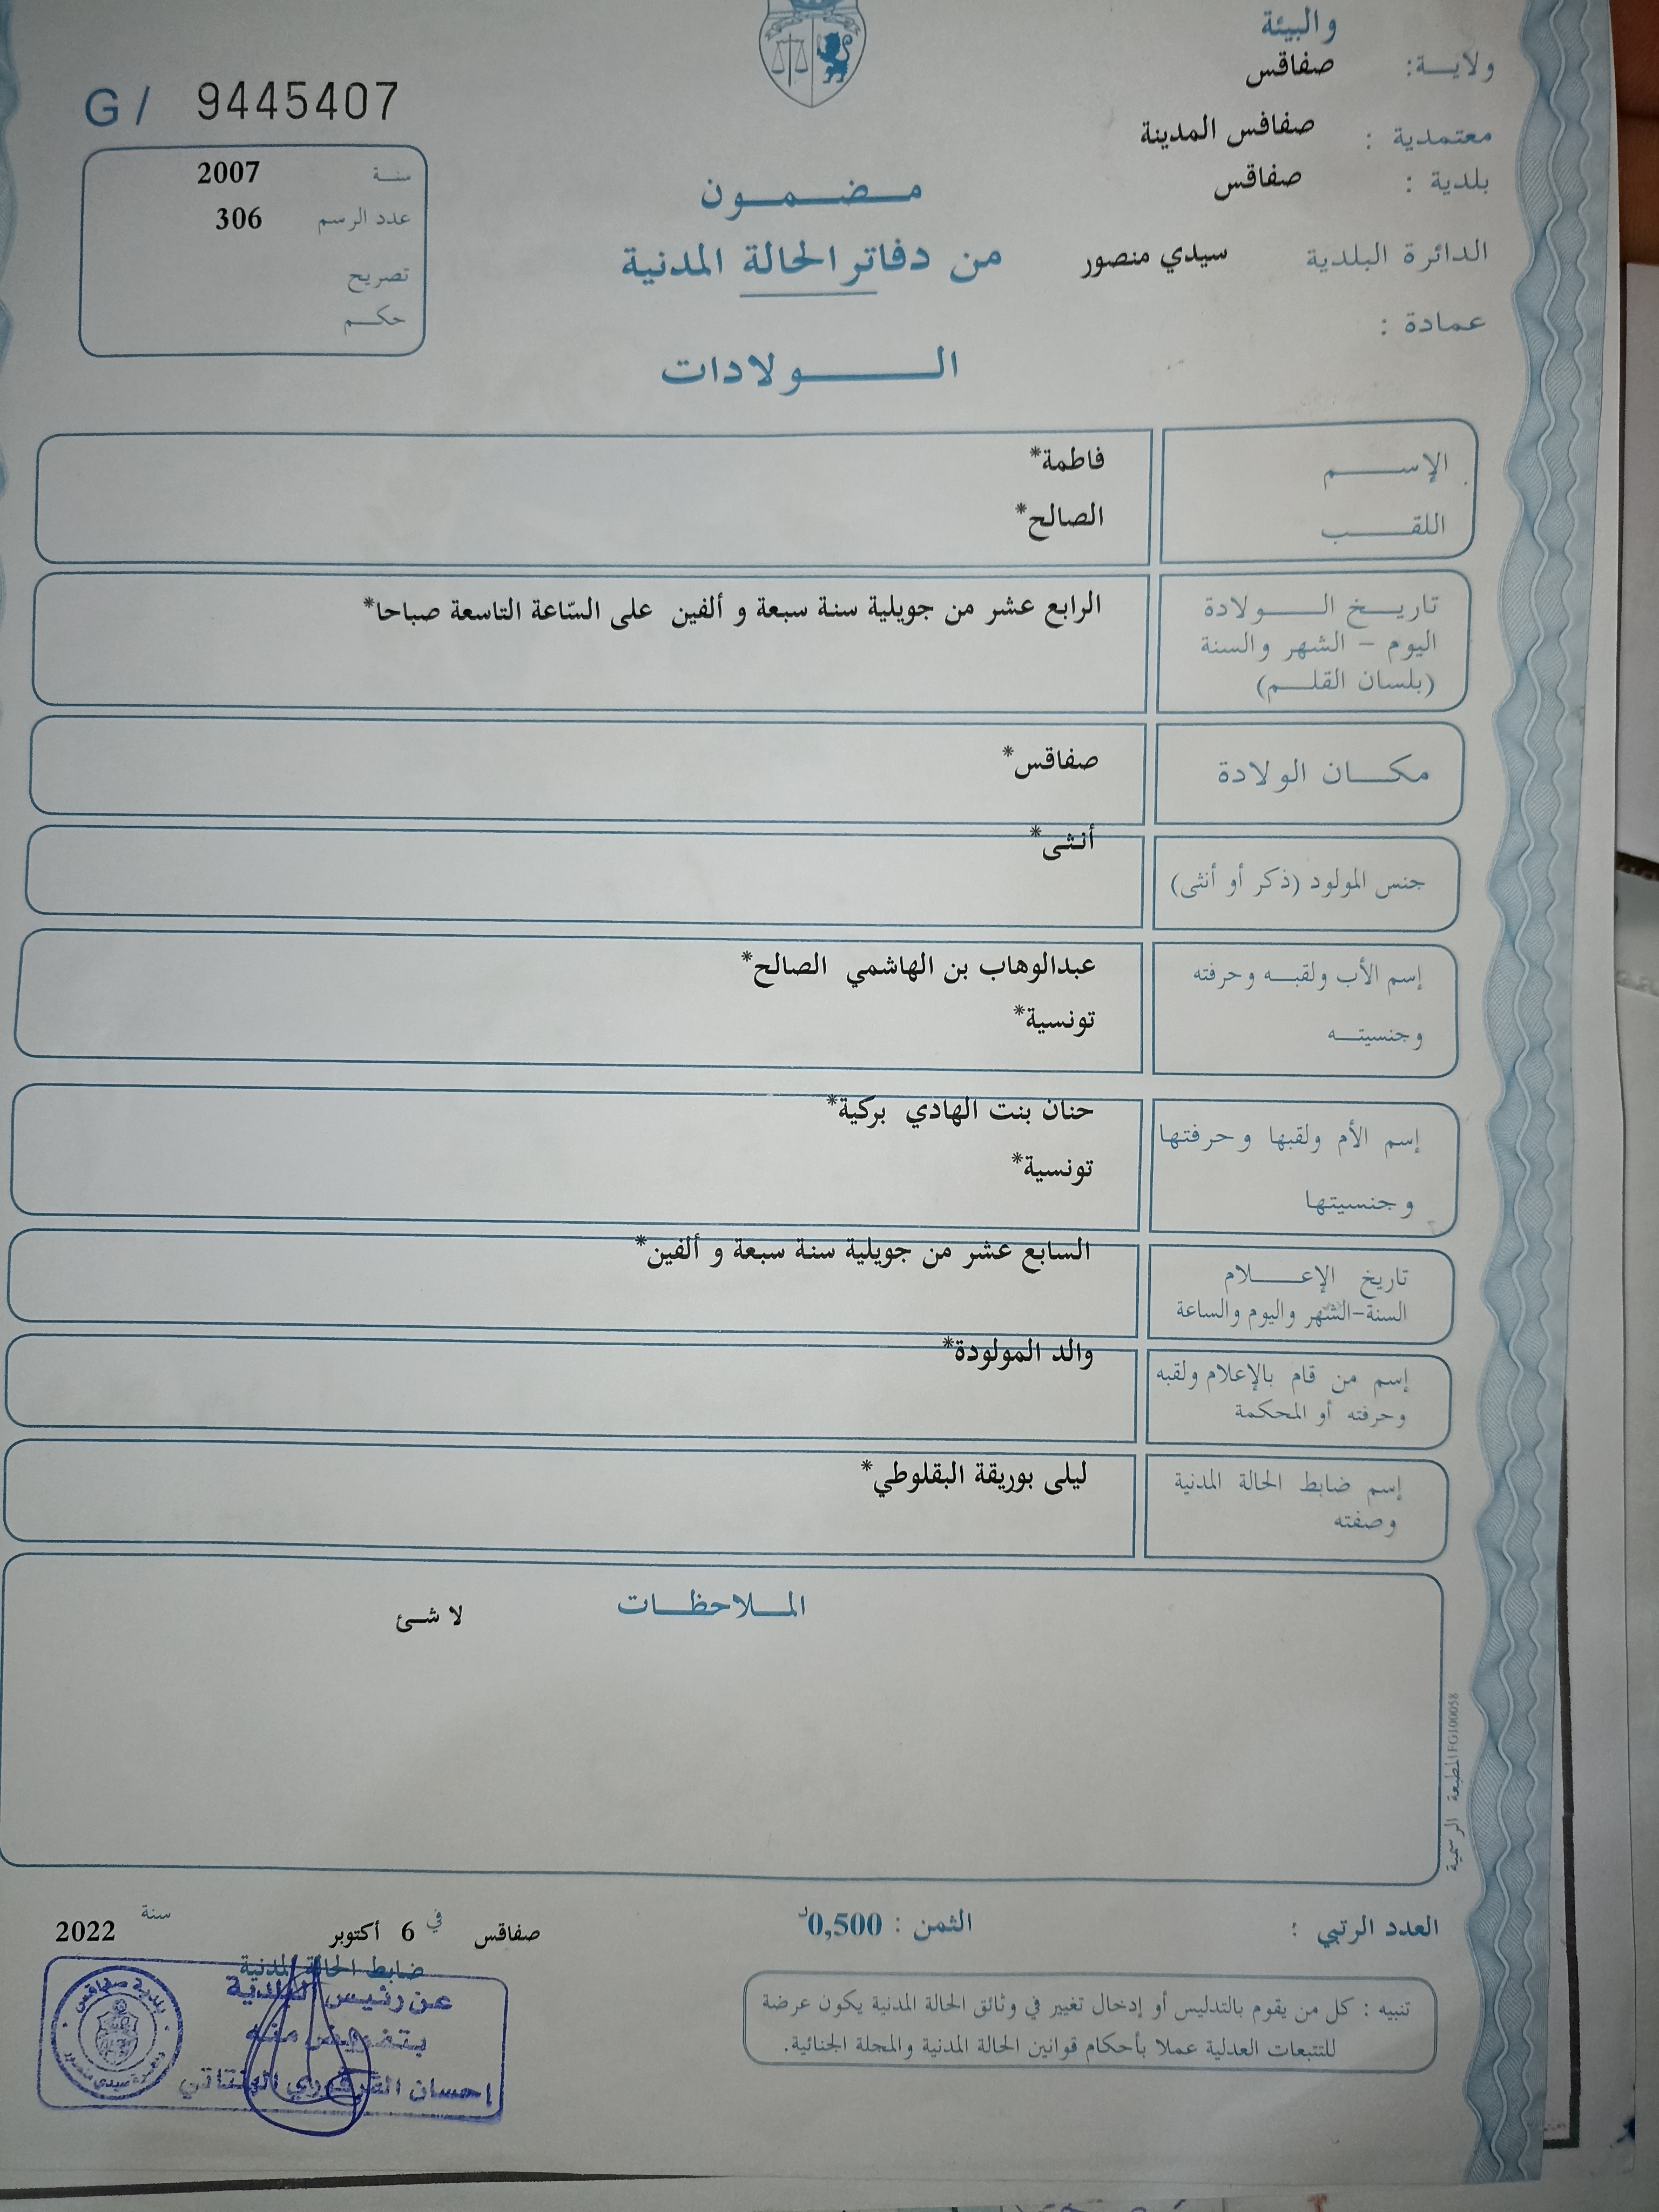 والبيئة
ولاية: صفاقس
معتمدية : صفاقس المدينة
بلدية : صفاقس
الدائرة البلدية سيدي منصور
عمادة :
G / 9445407
سنة 2007
عدد الرسم 306
تصريح
حكم
مضمون
من دفاتر الحالة المدنية
الولادات
الإسم فاطمة*
اللقب الصالح*
تاريخ الولادة الرابع عشر من جويلية سنة سبعة و ألفين على السّاعة التاسعة صباحا*
اليوم - الشهر والسنة
(بلسان القلم)
مكان الولادة صفاقس*
جنس المولود (ذكر أو أنثى) أنثى*
إسم الأب ولقبه وحرفته عبدالوهاب بن الهاشمي الصالح*
وجنسيته تونسية*
إسم الأم ولقبها وحرفتها حنان بنت الهادي بركية*
وجنسيتها تونسية*
تاريخ الإعلام السابع عشر من جويلية سنة سبعة و ألفين*
السنة-الشهر واليوم والساعة
إسم من قام بالإعلام ولقبه والد المولودة*
وحرفته أو المحكمة
إسم ضابط الحالة المدنية ليلى بوريقة البقلوطي*
وصفته
الملاحظات
لا شئ
المطبعة الرسمية FG100058
العدد الرتبي :
الثمن : 0,500د
صفاقس في 6 أكتوبر سنة 2022
ضابط الحالة المدنية
عن رئيس البلدية
بتفويض منه
إحسان
بلدية صفاقس
دائرة سيدي منصور
تنبيه : كل من يقوم بالتدليس أو إدخال تغيير في وثائق الحالة المدنية يكون عرضة
للتتبعات العدلية عملا بأحكام قوانين الحالة المدنية والمجلة الجنائية.